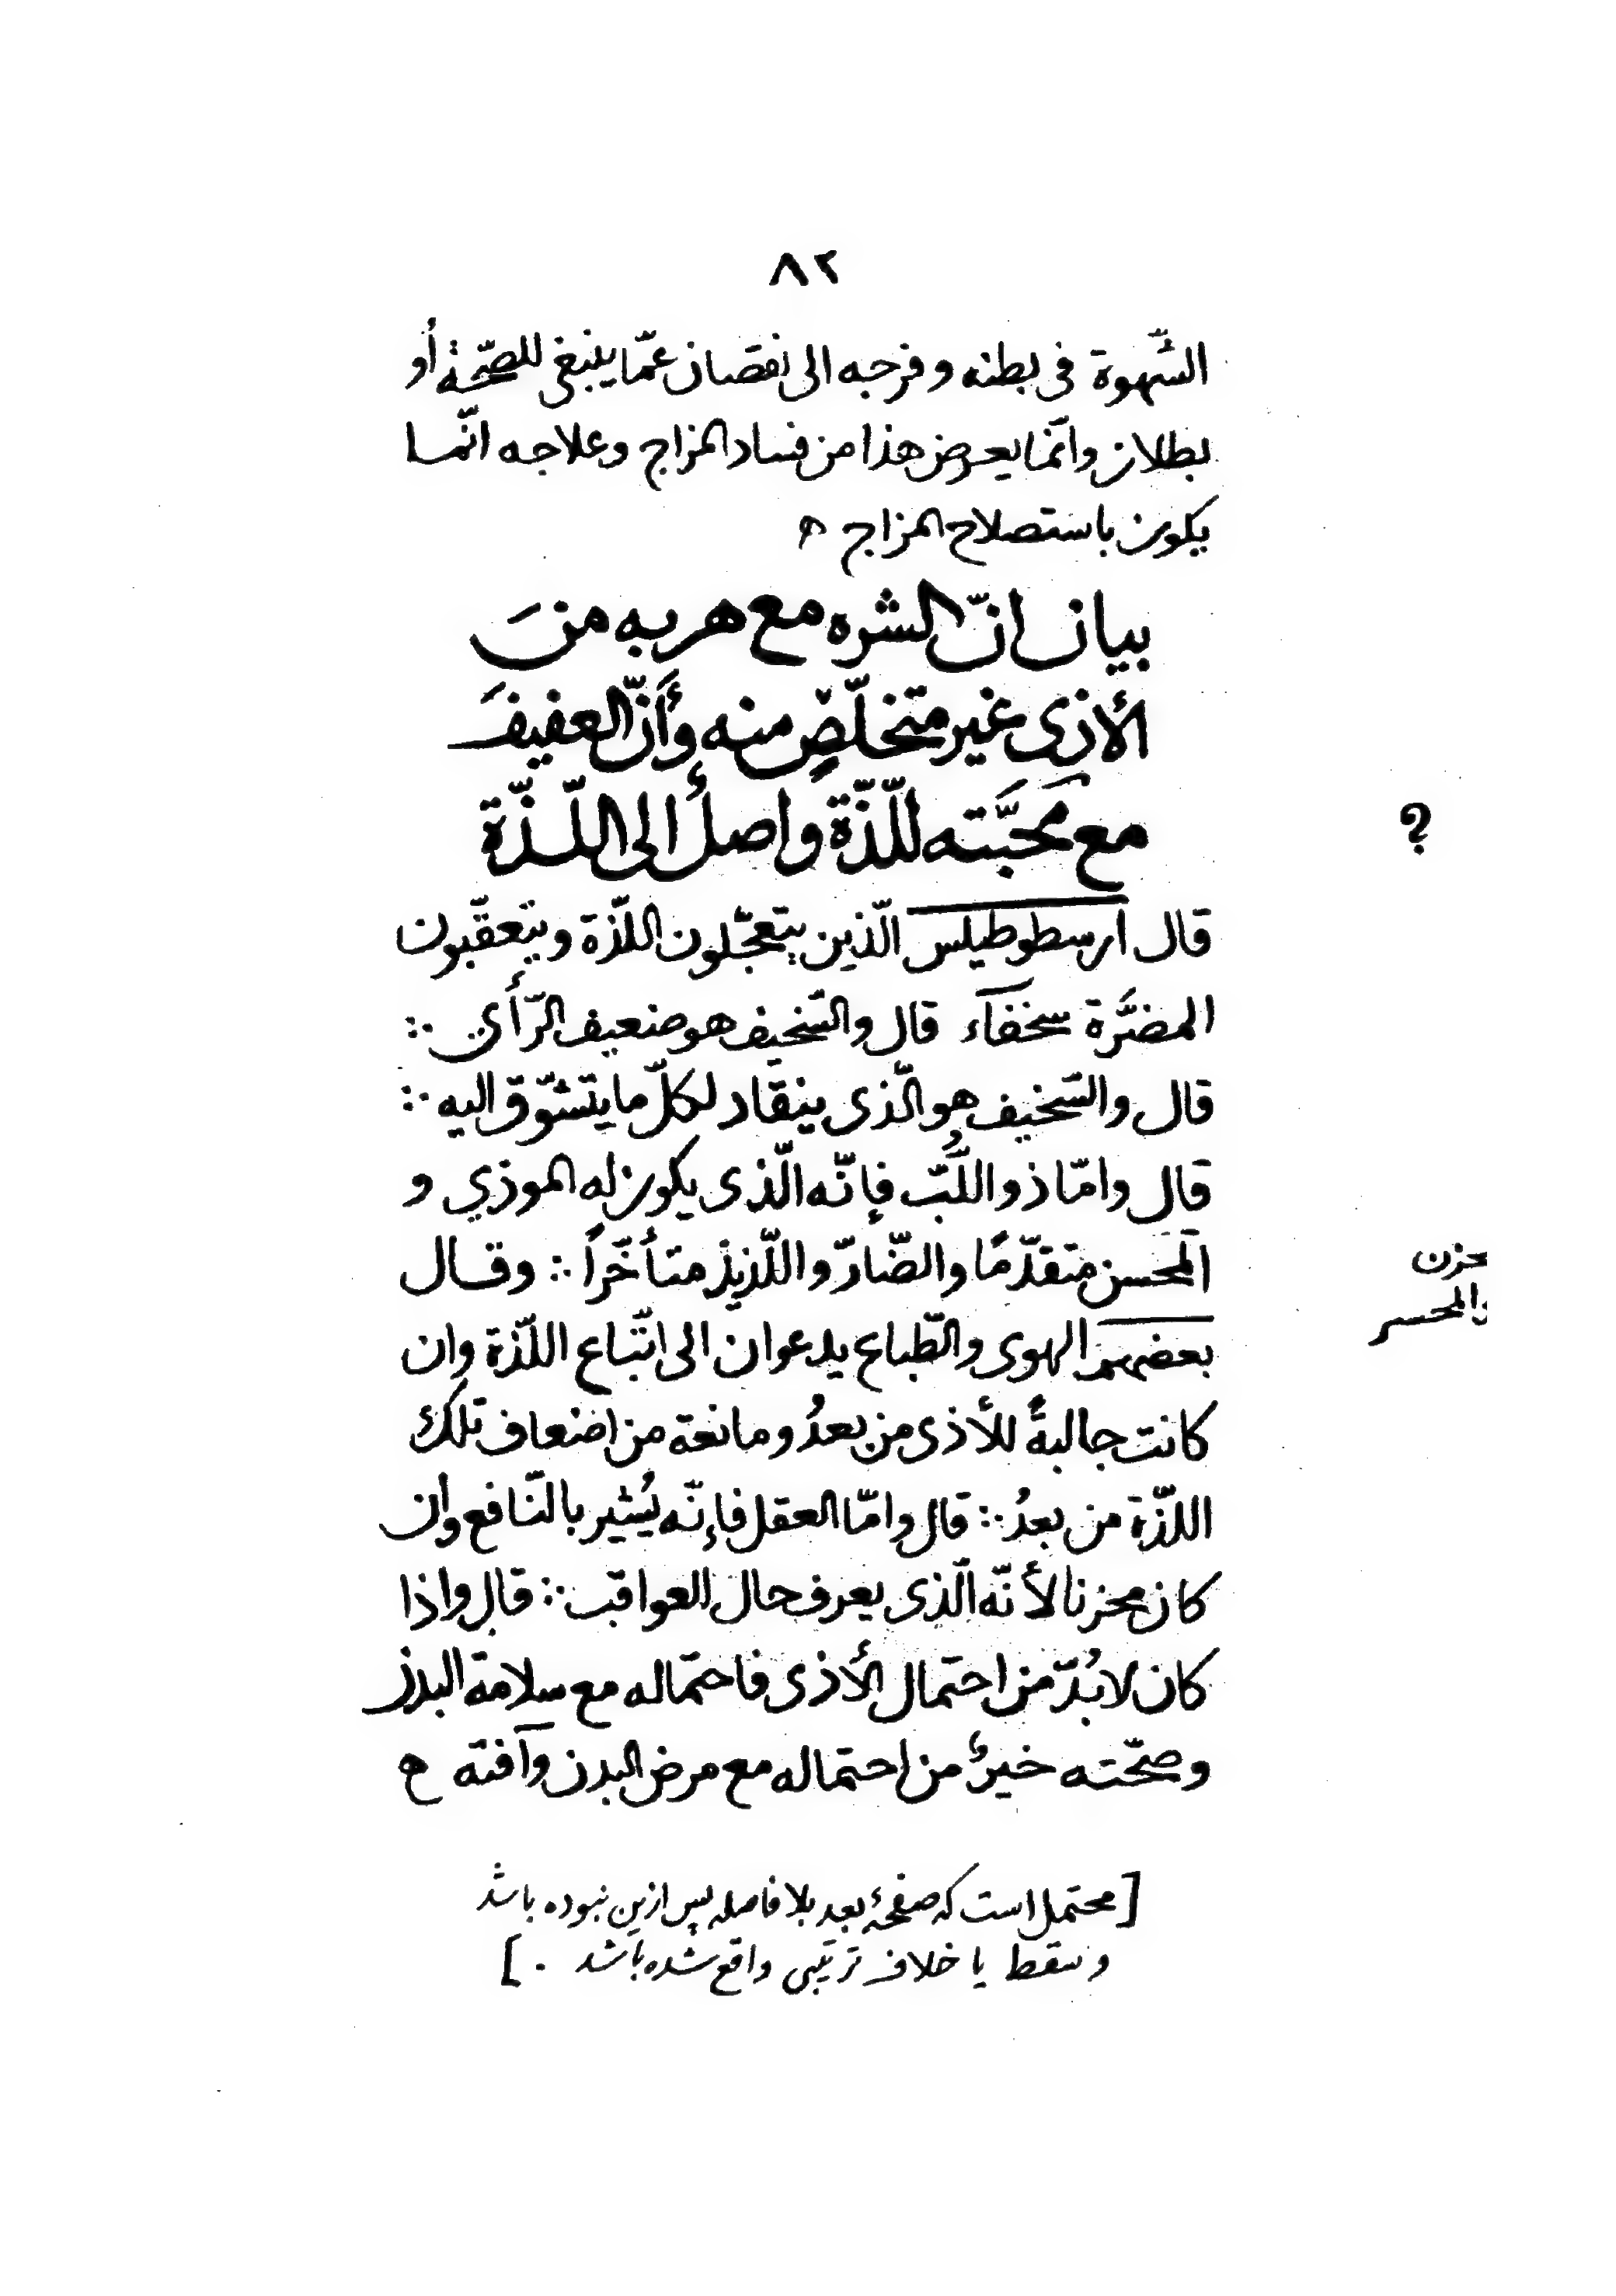 ٨٢
الشّهوة فى بطنه و فرجه الى نقصان عمّا ينبغى للصّحّة أو
بطلان وانّما يعرض هذا من فساد المزاج وعلاجه انّما
يكون باستصلاح المزاج ه
بيان انّ الشره مع هربه منَ
الأذى غير متخلّصٍ منه وأَنّ العفيفَ
مع مَحَبَّته للّذّة واصلٌ الى اللّذّة
?
قال ارسطوطيلس الّذين يتعجّلون اللّذة ويتعقّبون
المضرَّة سخفآء قال والسّخيف هو ضعيف الرّأي ∴
قال والسّخيف هو الّذى ينقاد لكلّ ما يتشوّق اليه ∴
قال وامّا ذو اللُّبّ فإنّه الّذى يكون له الموذي و
المحسن متقدّمًا والضّارّ واللّذيذ متأخّراً ∴ وقال
حزن
والمحسر
بعضهم الهوى والطّباع يدعوان الى اتّباع اللّذة وان
كانت جالبةً للأذى من بعدُ ومانعة من اضعاف تلك
اللّذّة من بعدُ ∴ قال وامّا العقل فإنّه يُشير بالنّافع وان
كان محزنا لأنّه الّذى يعرف حال العواقب ∴ قال واذا
كان لا بُدّ من احتمال الأذى فاحتماله مع سلامة البدن
وصحّته خيرٌ من احتماله مع مرض البدن وآفته ه
[محتمل است که صفحۀ بعد بلا فاصله پس ازین نبوده باشد
و سقط یا خلاف ترتیبی واقع شده باشد .]